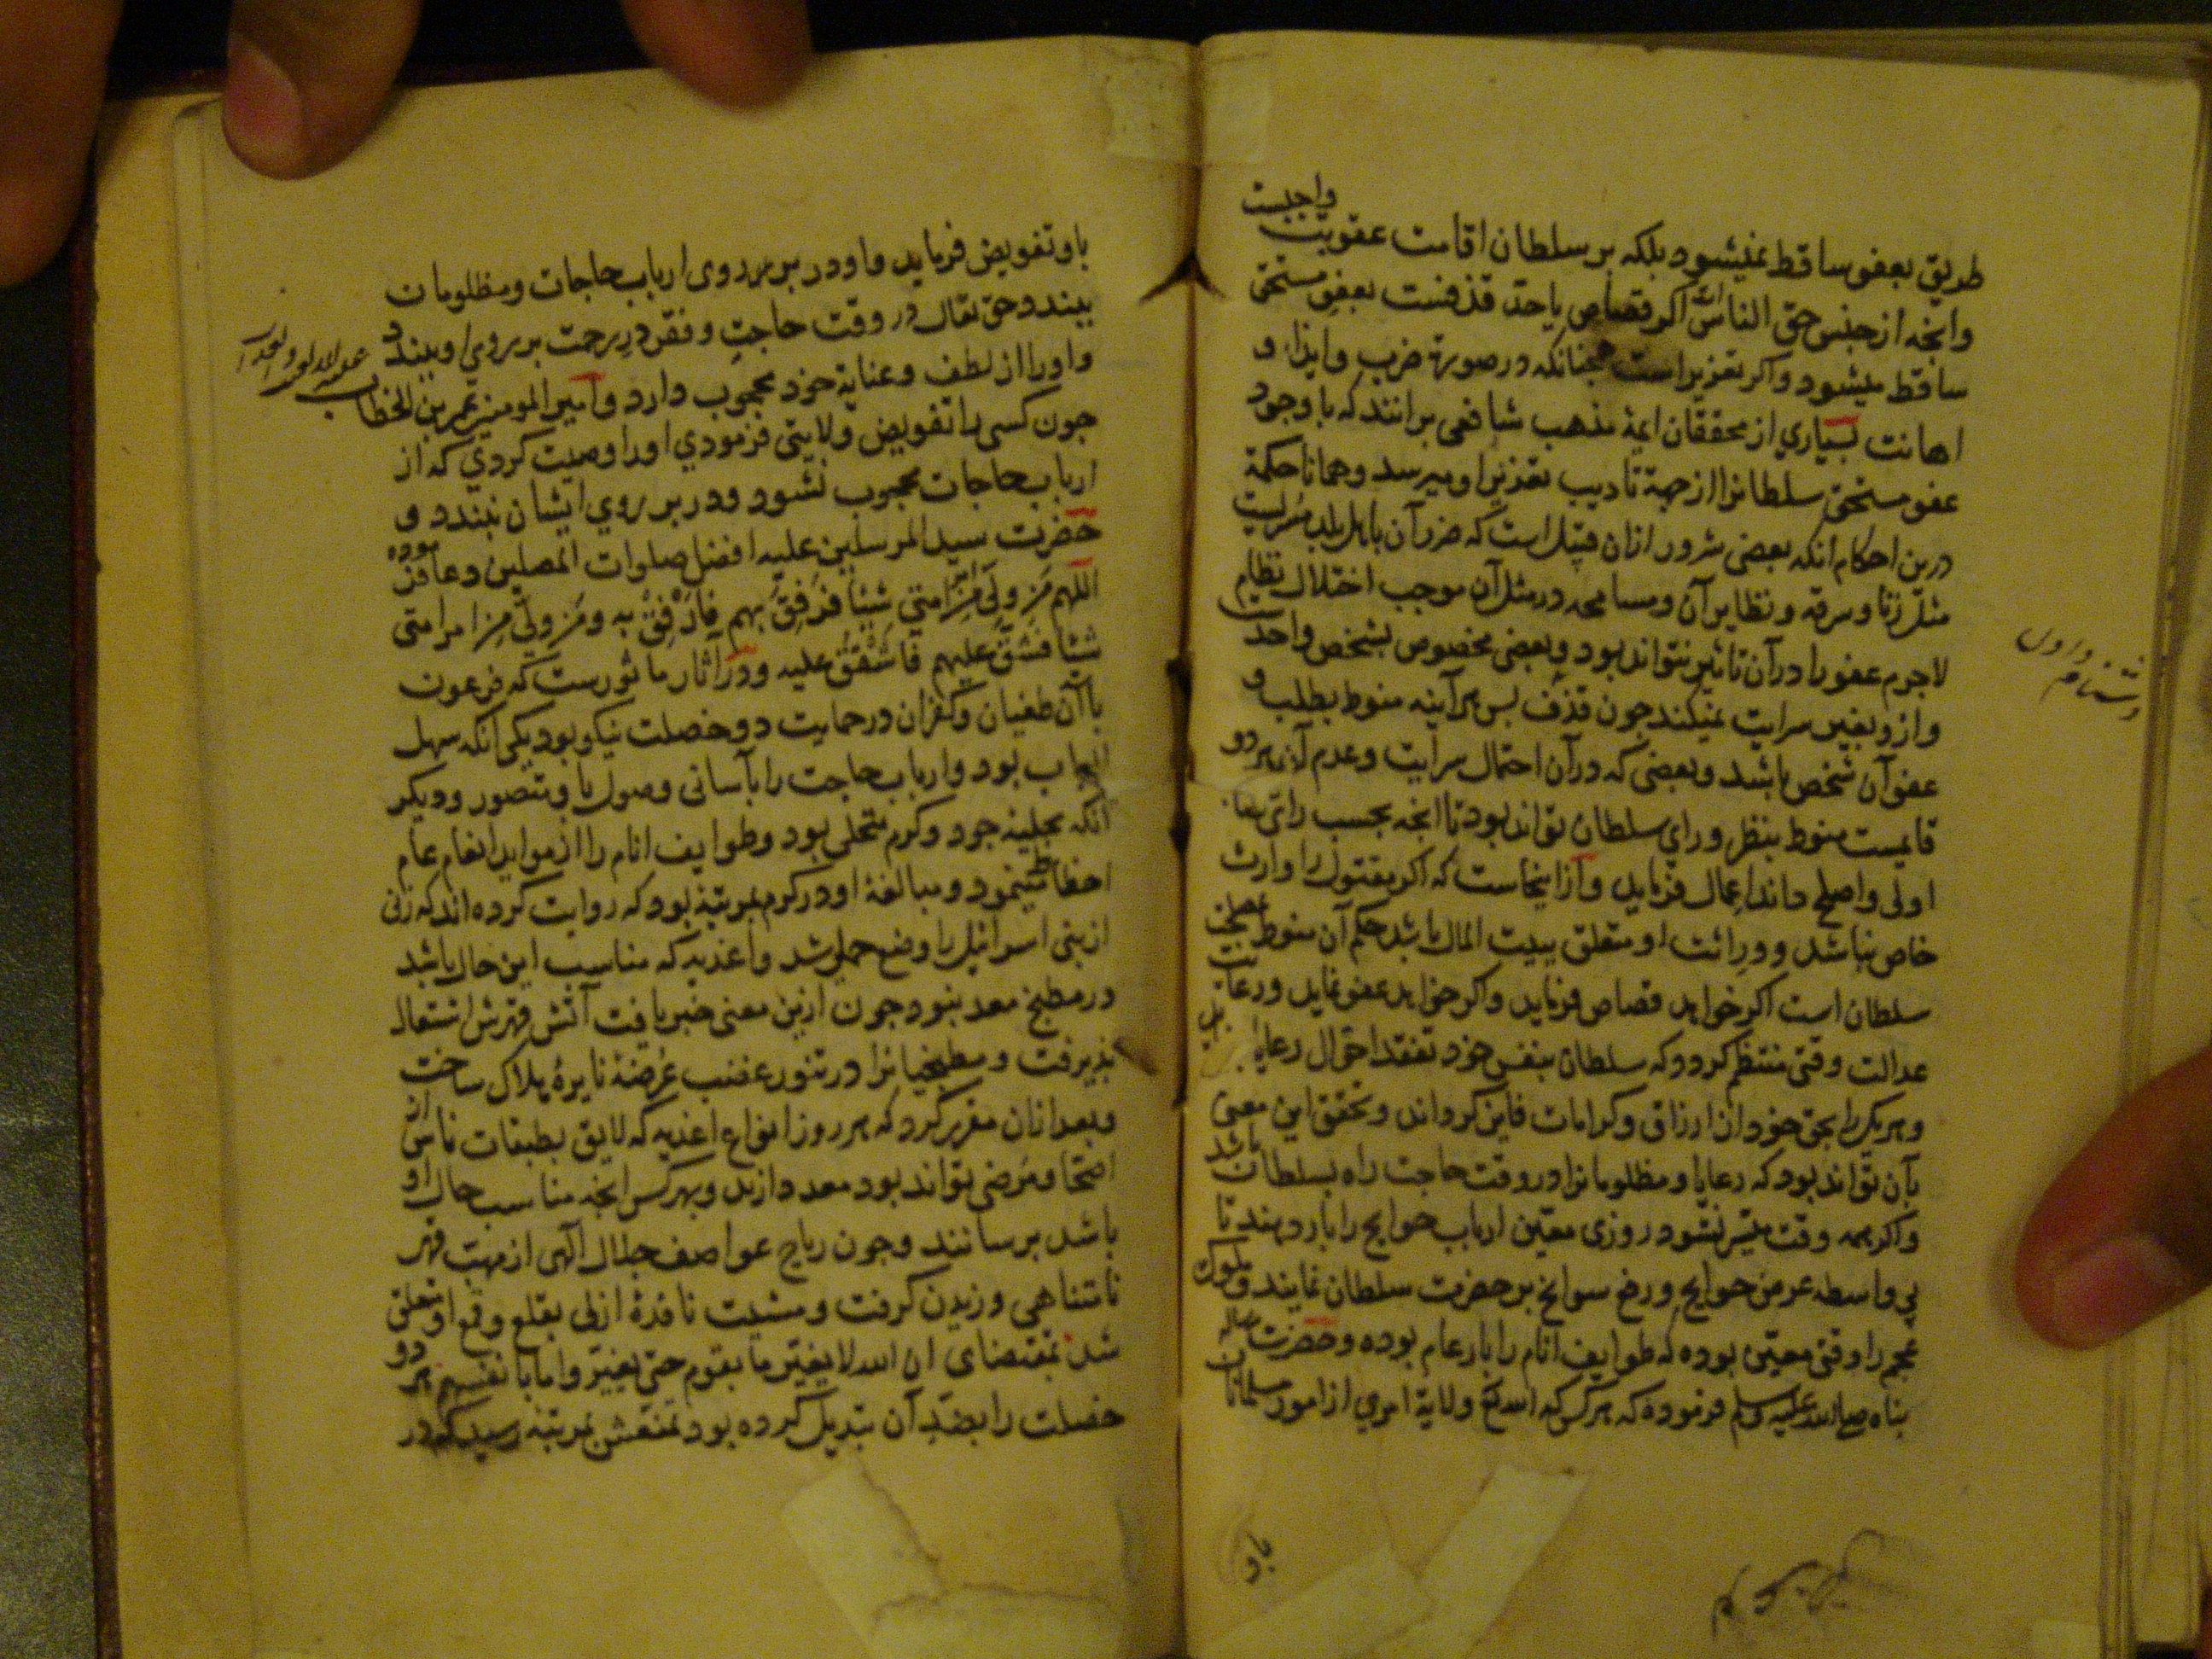 واجبست
طریق بعفو ساقط نمیشود بلکه بر سلطان اقامت عقوبت
وانچه از جنس حق الناس است اکر قصاص یا حد قذفست بعفو مستحق
ساقط میشود واکر تعزیر است همجنانکه در صورة ضرب وایذا و
اهانت بسیاری از محققان ایمۀ مذهب شافعی برانند که با وجود
عفو مستحق سلطانرا از جهة تادیب تعزیر او میرسد وهمانا حکمة
درین احکام انکه بعضی شرور ازان قبیل است که ضرر آن باهل بلد
مثل زنا وسرقه ونظایر آن ومسامحه در مثل آن موجب اختلال نظام
لاجرم عفو را در آن تاثیر نتواند بود وبعضی مخصوص بشخص واحدست
واز وبغیر سرایت نمیکند جون قذف بس هر آینه منوط بطلب و
عفو آن شخص باشد وبعضی که در آن احتمال سرایت وعدم آن هر دو
قایمست منوط بنظر ورای سلطان تواند بود تا انجه بحسب رای
اولی واصلح داند اعمال فرماید وازاینجاست که اکر مقتول را وارث
خاص نباشد وورائت او متعلق ببیت المال باشد حکم آن منوط بمصلحت
سلطان است اکر خواهد قصاص فرماید واکر خواهد عفو نماید ورعایت
عدالت وقتی منتظم کردد که سلطان بنفس خود تفقد احوال رعایا
وهریک را بحق خود از ارزاق وکرامات فایز کرداند وتحقق این معنی
بآن تواند بود که رعایا ومظلومانرا در وقت حاجت راه بسلطان باشد
واکر همه وقت میسر نشود روزی معین ارباب حوایج را بار دهند تا
بی واسطه عرض حوایج ورفع سوانح بر حضرت سلطان نمایند وملوک
عجم را وقتی معین بوده که طوایف انام را بار عام بوده وحضرت رسالت
بناه صلی الله علیه وسلم فرموده که هر کس که الله تع ولایة امری از امور مسلمانان
باو
باو تفویض فرماید واو در بر روی ارباب حاجات ومظلومان
ببندد حق تعالی در وقت حاجت وفقر در رحمت بر روی او ببندد
واورا از لطف وعنایة خود محجوب دارد وامیر المومنین عمر بن الخطاب
جون کسی را تفویض ولایتی فرمودی اورا وصیت کردی که از
ارباب حاجات محجوب نشود ودر بر روی ایشان نبندد و
حضرت سید المرسلین علیه افضل صلوات المصلین دعا فرموده
اللهم من ولی من امر امتی شیئا فرفق بهم فارفق به ومن ولی من امر امتی
شیئا فشق علیهم فاشقق علیه ودر آثار ماثورست که فرعون
با آن طغیان وکفران در حمایت دو خصلت نیکو بود یکی انکه سهل
الحجاب بود وارباب حاجت را بآسانی وصول باو متصور ودیکر
انکه بحلیه جود وکرم متحلی بود وطوایف انام را از مواید انعام عام
احظا مینمود ومبالغۀ او در کرم بمرتبۀ بود که روایت کرده اند که زنی
از بنی اسرائیل را وضع حمل شد واغذیه که مناسب این حال باشد
در مطبخ معد نبود جون ازین معنی خبر یافت آتش قهرش اشتعال
بذیرفت ومطبخیانرا در تنور غضب عرضۀ نایرۀ هلاک ساخت
وبعد ازان مقرر کرد که هر روز انواع اغذیه که لایق بطبقات ناس از
اصحا ومرضی تواند بود معد دارند وبهر کس انجه مناسب حال او
باشد برسانند وجون ریاح عواصف جلال الهی از مهب قهر
نامتناهی وزیدن کرفت ومشیت نافذۀ ازلی بقلع وقمع او متعلق
شد بمقتضای ان الله لا یغیر ما بقوم حتی یغیروا ما بانفسهم هر دو
خصلت را بضد آن تبدیل کرده بود تمنعش بمرتبۀ رسید که در